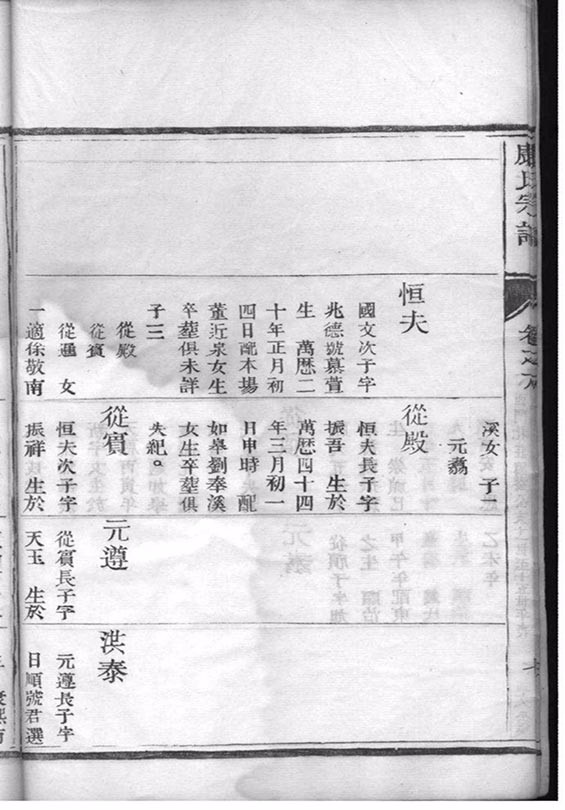 氏宗譜
卷之
七
恒夫
國文次子字
兆德號慕萱
生 萬歷二
十年正月初
四日配本場
董近泉女生
卒葬俱未詳
子三
從殿
從賓
從 女
一適徐敬南
溪女 子一
元翥
從殿
恒夫長子字
振吾 生於
萬歷四十四
年三月初一
日申時 配
如皋劉奉溪
女生卒葬俱
失紀。
從賓
恒夫次子字
振祥 生於
元遵
從賓長子字
天玉 生於
洪泰
元遵長子字
日順號君選